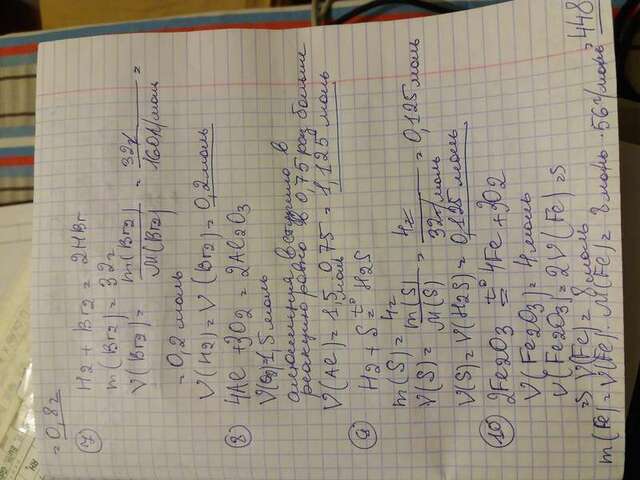 = 0,8г
7 H2 + Br2 = 2HBr
m(Br2) = 32г
V(Br2) = m(Br2) / M(Br2) = 32г / 160г/моль =
= 0,2 моль
V(H2) = V(Br2) = 0,2 моль
8 4Al + 3O2 = 2Al2O3
V(O2) = 1,5 моль
алюминия вступило в
реакцию равно в 0,75 раз больше
V(Al) = 1,5 моль · 0,75 = 1,125 моль
9 H2 + S t° = H2S
m(S) = 4г
V(S) = m(S) / M(S) = 4г / 32г/моль = 0,125 моль
V(S) = V(H2S) = 0,125 моль
10 2Fe2O3 t° = 4Fe + 3O2
V(Fe2O3) = 4 моль
V(Fe2O3) = 2V(Fe) =>
=> V(Fe) = 8 моль
m(Fe) = V(Fe) · M(Fe) = 8 моль · 56г/моль = 448